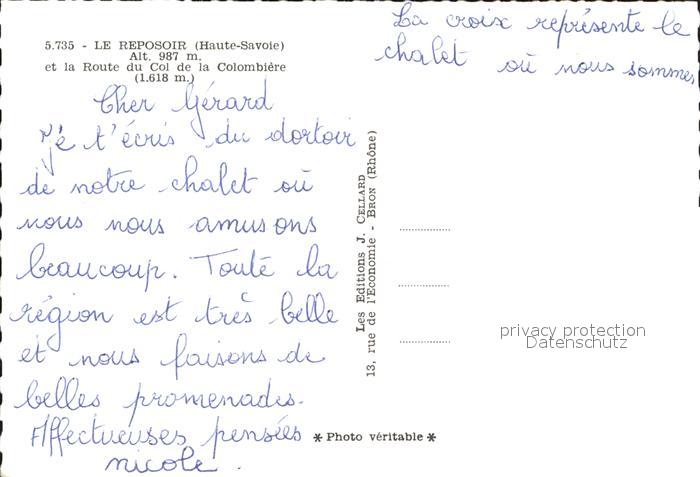 La croix représente le
chalet où nous sommes
5.735 - LE REPOSOIR (Haute-Savoie)
Alt. 987 m.
et la Route du Col de la Colombière
(1.618 m.)
Cher Gérard
Je t'écris du dortoir
de notre chalet où
nous nous amusons
beaucoup. Toute la
région est très belle
et nous faisons de
belles promenades.
Affectueuses pensées
nicole.
Les Editions J. CELLARD
13, rue de l'Economie - BRON (Rhône)
* Photo véritable *
privacy protection
Datenschutz